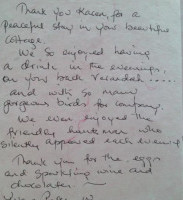 Thank you Karen, for a
peaceful stay in your beautiful
cottage.
We so enjoyed having
a drink in the evenings,
on your back verandah.....
and with so many
gorgeous birds for company.
We even enjoyed the
friendly huntsman who
silently appeared each evening
Thank you for the eggs
and sparkling wine and
chocolates.